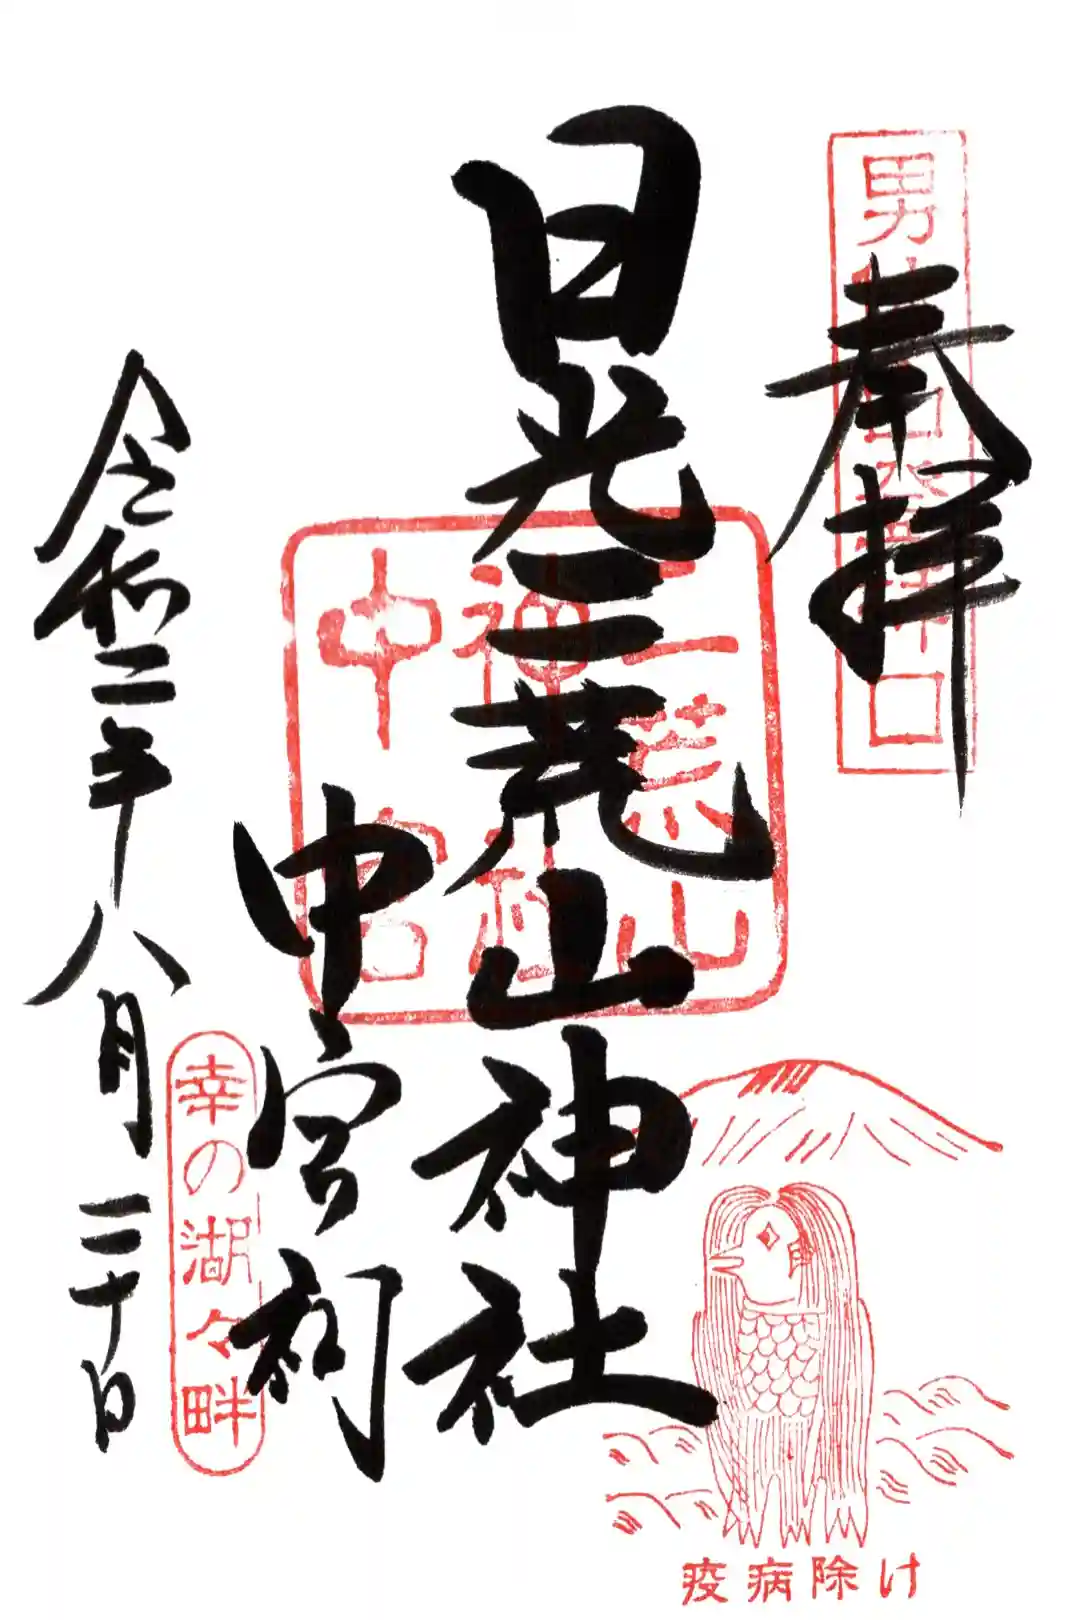 奉拝
男体山登拝口
日光二荒山神社
二荒山
神社
中宮
中宮祠
令和二年八月三十日
幸の湖々畔
疫病除け